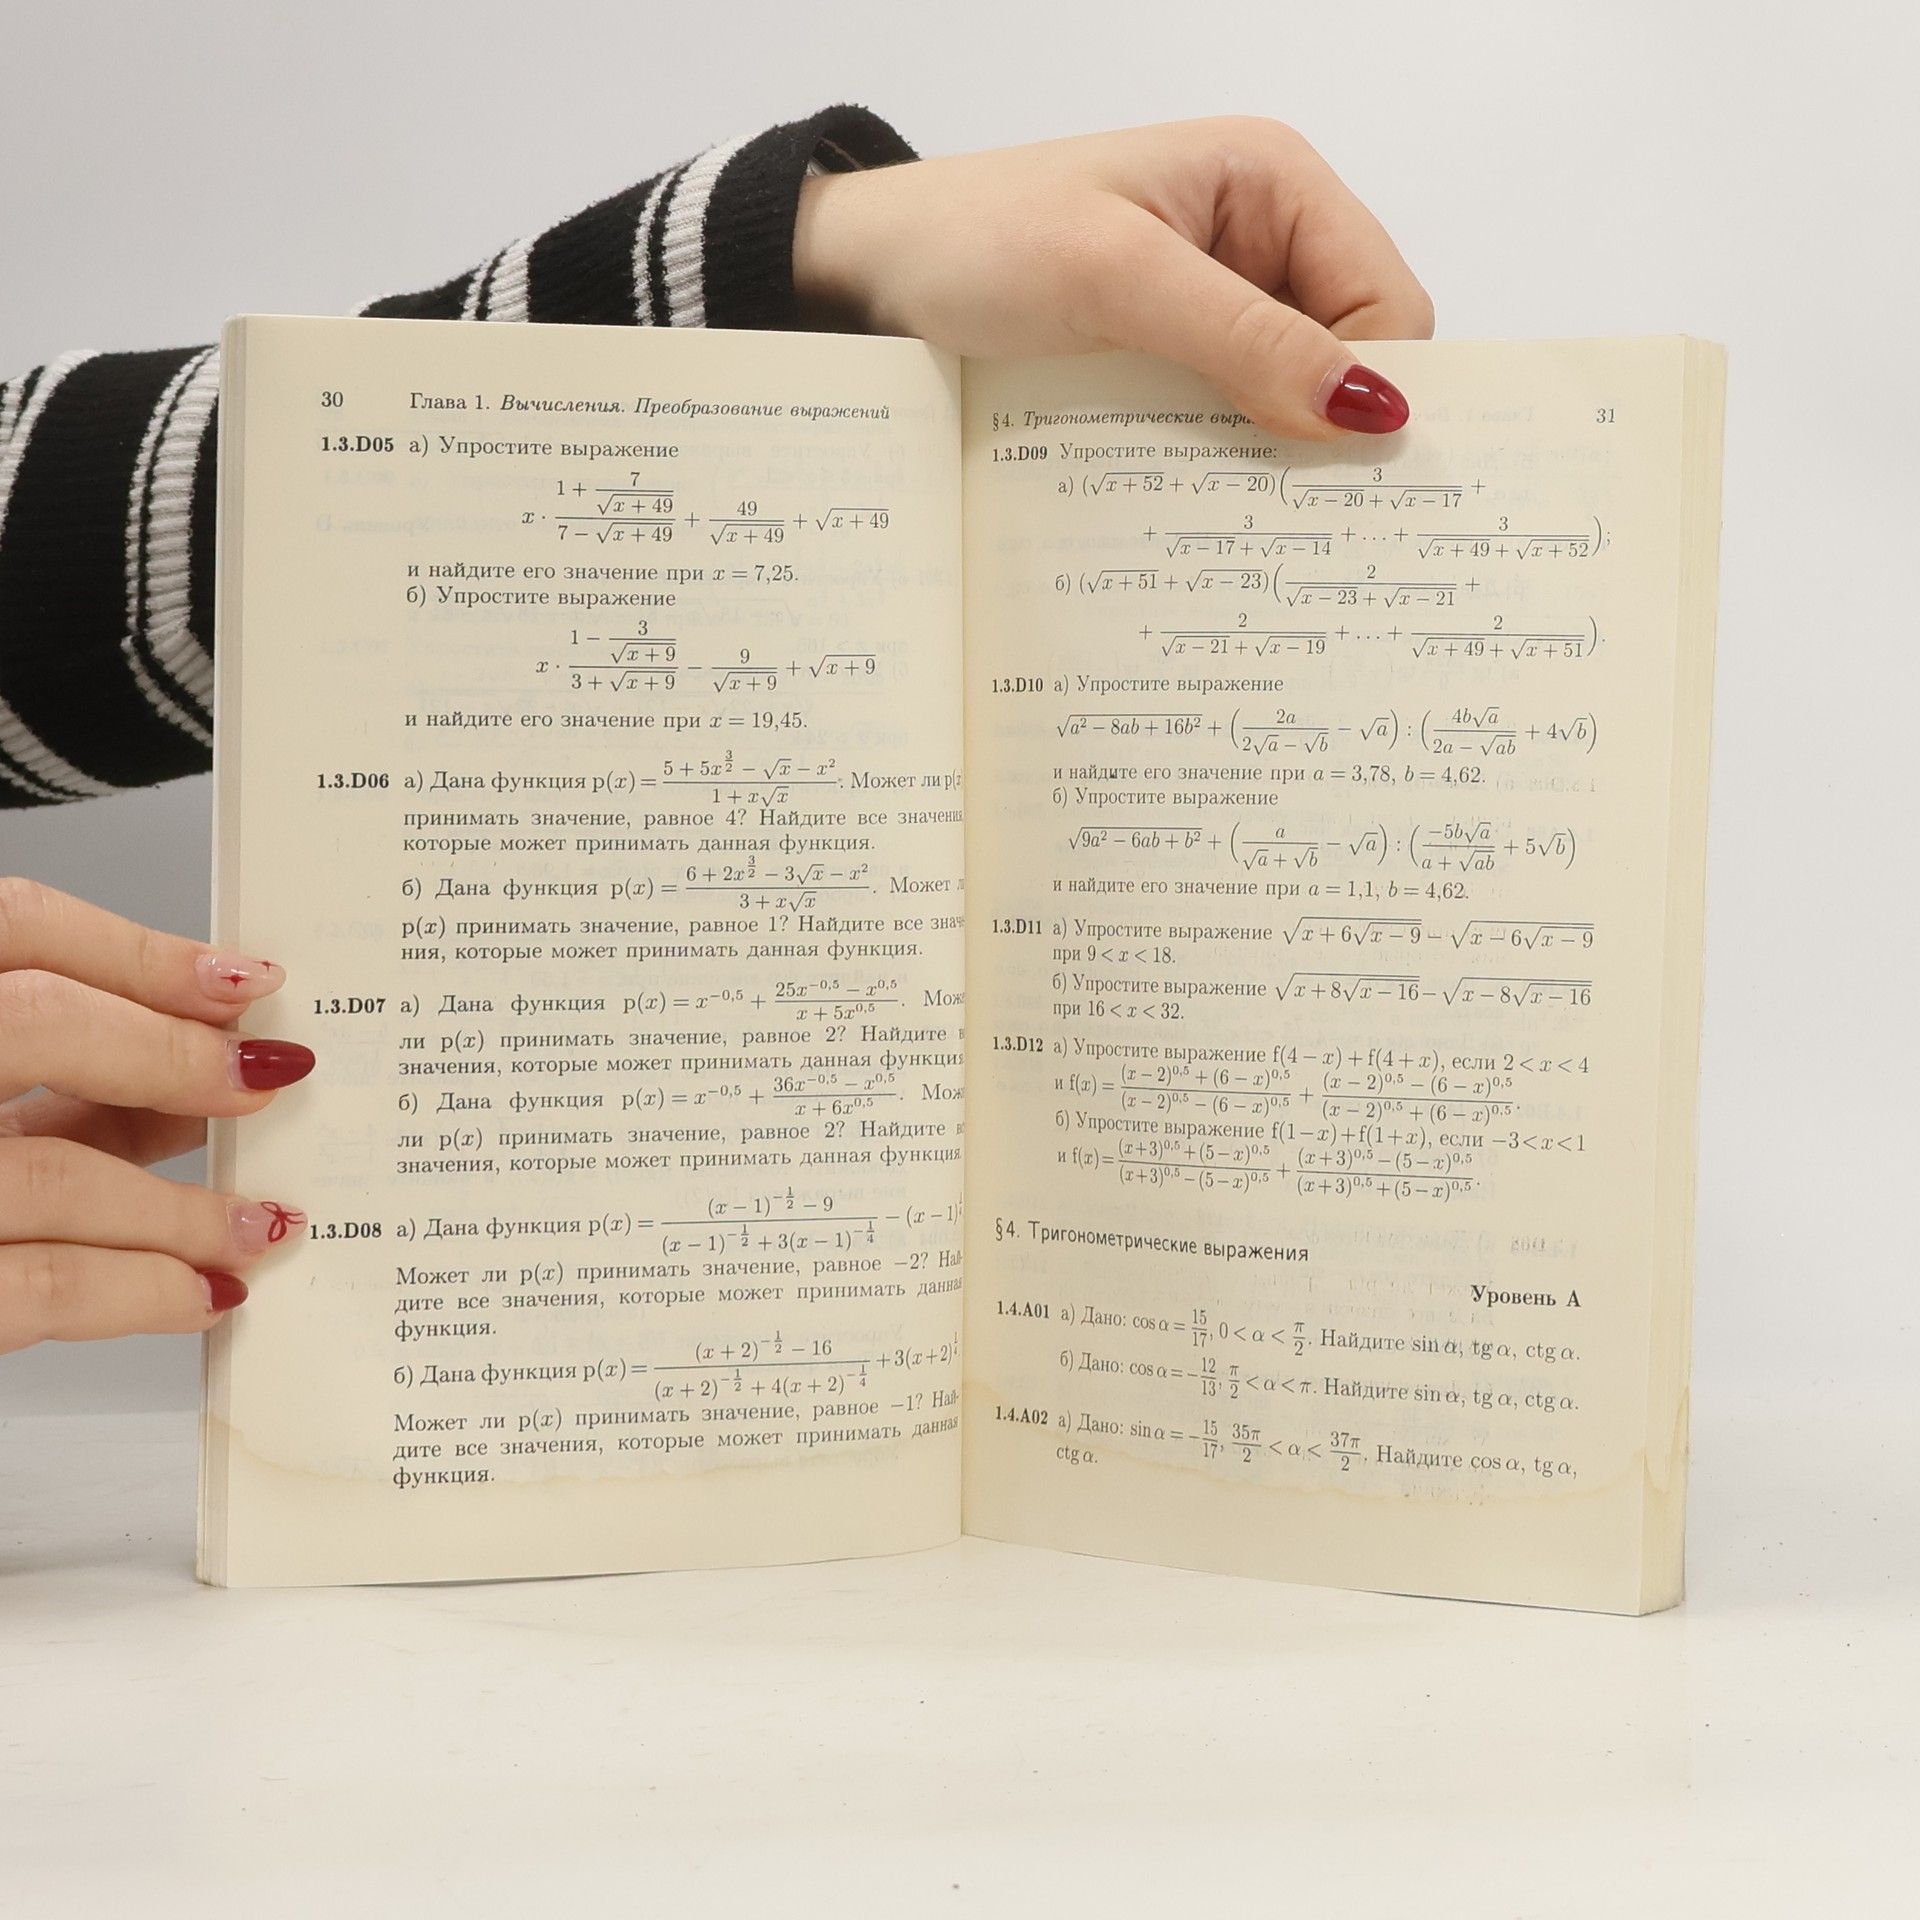 30 Глава 1. Вычисления. Преобразование выражений
1.3.D05 а) Упростите выражение
x · (1 + 7/√(x + 49))/(7 − √(x + 49)) + 49/√(x + 49) + √(x + 49)
и найдите его значение при x = 7,25.
б) Упростите выражение
x · (1 − 3/√(x + 9))/(3 + √(x + 9)) − 9/√(x + 9) + √(x + 9)
и найдите его значение при x = 19,45.
1.3.D06 а) Дана функция p(x) = (5 + 5x^(3/2) − √x − x²)/(1 + x√x). Может ли p(x
принимать значение, равное 4? Найдите все значения
которые может принимать данная функция.
б) Дана функция p(x) = (6 + 2x^(3/2) − 3√x − x²)/(3 + x√x). Может
p(x) принимать значение, равное 1? Найдите все знач
ния, которые может принимать данная функция.
1.3.D07 а) Дана функция p(x) = x^(−0,5) + (25x^(−0,5) − x^(0,5))/(x + 5x^(0,5)). Мож
ли p(x) принимать значение, равное 2? Найдите в
значения, которые может принимать данная функция
б) Дана функция p(x) = x^(−0,5) + (36x^(−0,5) − x^(0,5))/(x + 6x^(0,5)). Мож
ли p(x) принимать значение, равное 2? Найдите в
значения, которые может принимать данная функция.
1.3.D08 а) Дана функция p(x) = ((x − 1)^(−1/2) − 9)/((x − 1)^(−1/2) + 3(x − 1)^(−1/4)) − (x − 1)
Может ли p(x) принимать значение, равное −2? Най-
дите все значения, которые может принимать данная
функция.
б) Дана функция p(x) = ((x + 2)^(−1/2) − 16)/((x + 2)^(−1/2) + 4(x + 2)^(−1/4)) + 3(x+2)
Может ли p(x) принимать значение, равное −1? Най-
дите все значения, которые может принимать данная
функция.
§4. Тригонометрические выра 31
1.3.D09 Упростите выражение:
а) (√(x + 52) + √(x − 20))(3/(√(x − 20) + √(x − 17)) +
+ 3/(√(x − 17) + √(x − 14)) + ... + 3/(√(x + 49) + √(x + 52)));
б) (√(x + 51) + √(x − 23))(2/(√(x − 23) + √(x − 21)) +
+ 2/(√(x − 21) + √(x − 19)) + ... + 2/(√(x + 49) + √(x + 51))).
1.3.D10 а) Упростите выражение
√(a² − 8ab + 16b²) + (2a/(2√a − √b) − √a) : (4b√a/(2a − √(ab)) + 4√b)
и найдите его значение при a = 3,78, b = 4,62.
б) Упростите выражение
√(9a² − 6ab + b²) + (a/(√a + √b) − √a) : (−5b√a/(a + √(ab)) + 5√b)
и найдите его значение при a = 1,1, b = 4,62.
1.3.D11 а) Упростите выражение √(x + 6√(x − 9)) − √(x − 6√(x − 9))
при 9 < x < 18.
б) Упростите выражение √(x + 8√(x − 16)) − √(x − 8√(x − 16))
при 16 < x < 32.
1.3.D12 а) Упростите выражение f(4 − x) + f(4 + x), если 2 < x < 4
и f(x) = ((x − 2)^(0,5) + (6 − x)^(0,5))/((x − 2)^(0,5) − (6 − x)^(0,5)) + ((x − 2)^(0,5) − (6 − x)^(0,5))/((x − 2)^(0,5) + (6 − x)^(0,5)).
б) Упростите выражение f(1−x)+f(1+x), если −3<x<1
и f(x)=((x+3)^(0,5)+(5−x)^(0,5))/((x+3)^(0,5)−(5−x)^(0,5)) + ((x+3)^(0,5)−(5−x)^(0,5))/((x+3)^(0,5)+(5−x)^(0,5)).
§4. Тригонометрические выражения
Уровень А
1.4.A01 а) Дано: cos α = 15/17, 0 < α < π/2. Найдите sin α, tg α, ctg α.
б) Дано: cos α = −12/13, π/2 < α < π. Найдите sin α, tg α, ctg α.
1.4.A02 а) Дано: sin α = −15/17, 35π/2 < α < 37π/2. Найдите cos α, tg α,
ctg α.